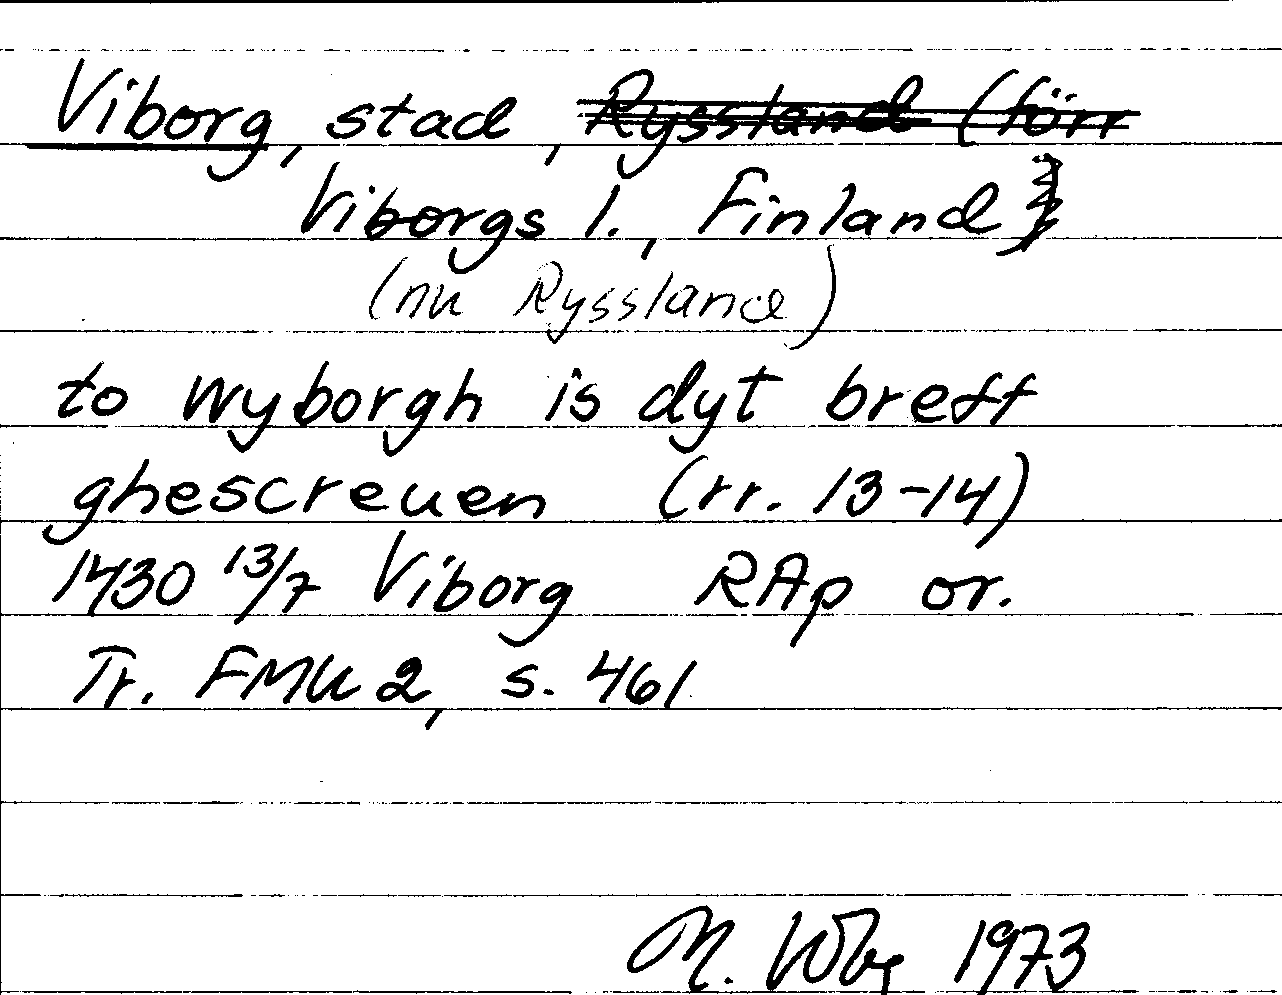 Viborg, stad, Ryssland (förr
Viborgs l., Finland)
(nu Ryssland)
to wyborgh is dyt breff
ghescreuen (rr. 13-14)
1430 13/7 Viborg RAp or.
Tr. FMU 2, s. 461
M. 1973